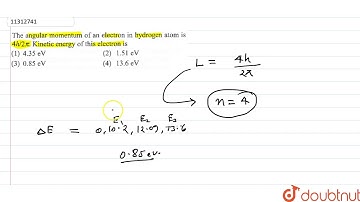 11312741
The angular momentum of an electron in hydrogen atom is
4h/2π. Kinetic energy of this electron is
(1) 4.35 eV (2) 1.51 eV
(3) 0.85 eV (4) 13.6 eV
L = 4h/2π
n = 4
E₁ E₂ E₃
ΔE = 0, 10.2, 12.09, 13.6
0.85 ev.
doubtnut